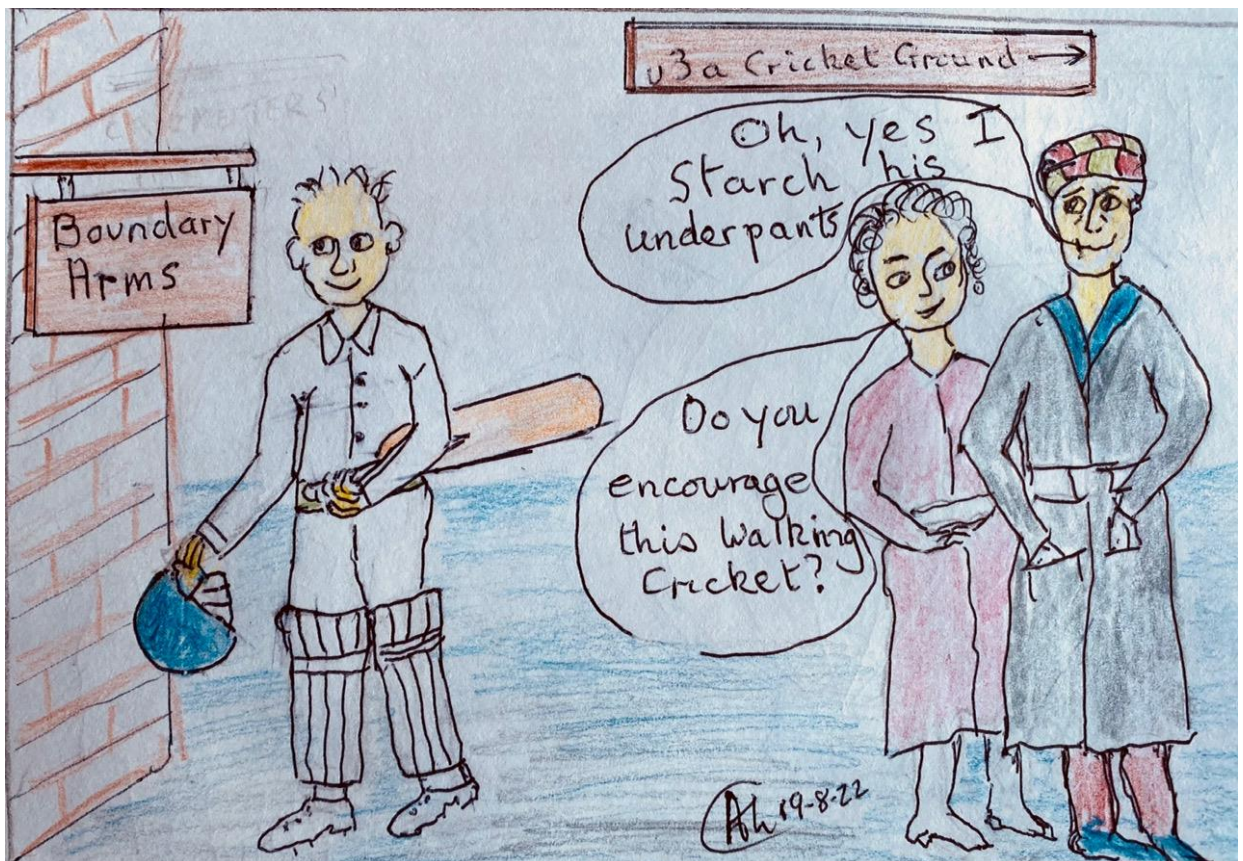 u3a Cricket Ground →
Boundary
Arms
Oh, yes I
Starch his
underpants
Do you
encourage
this Walking
Cricket?
19-8-22